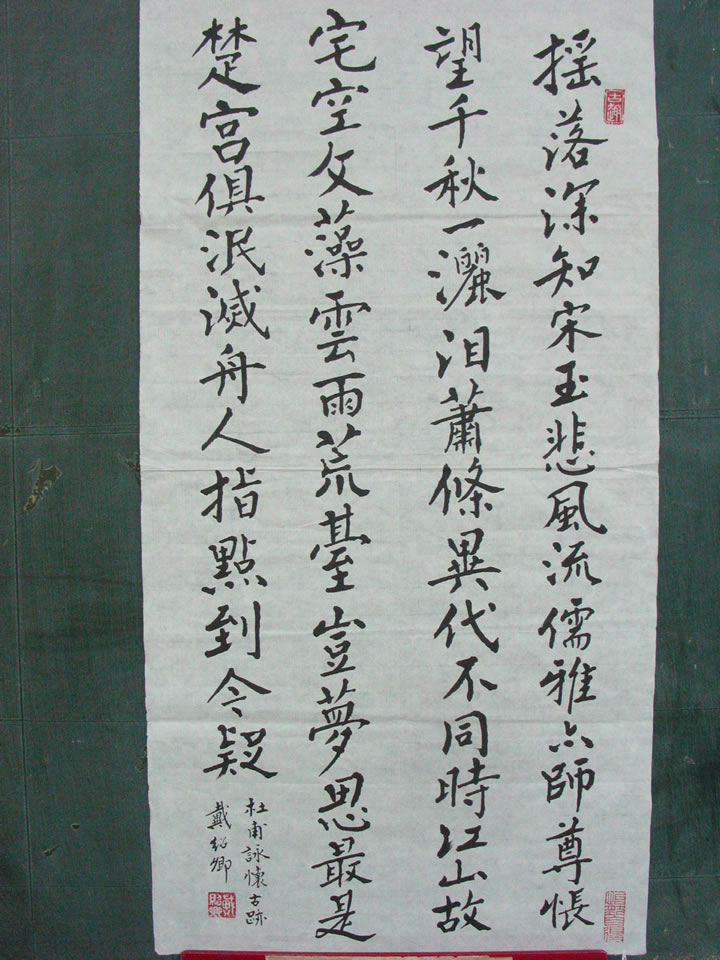 搖落深知宋玉悲風流儒雅亦師尊悵
望千秋一灑泪蕭條異代不同時江山故
宅空文藻雲雨荒臺豈夢思最是
楚宮俱泯滅舟人指點到今疑
杜甫詠懷古跡
戴紹卿